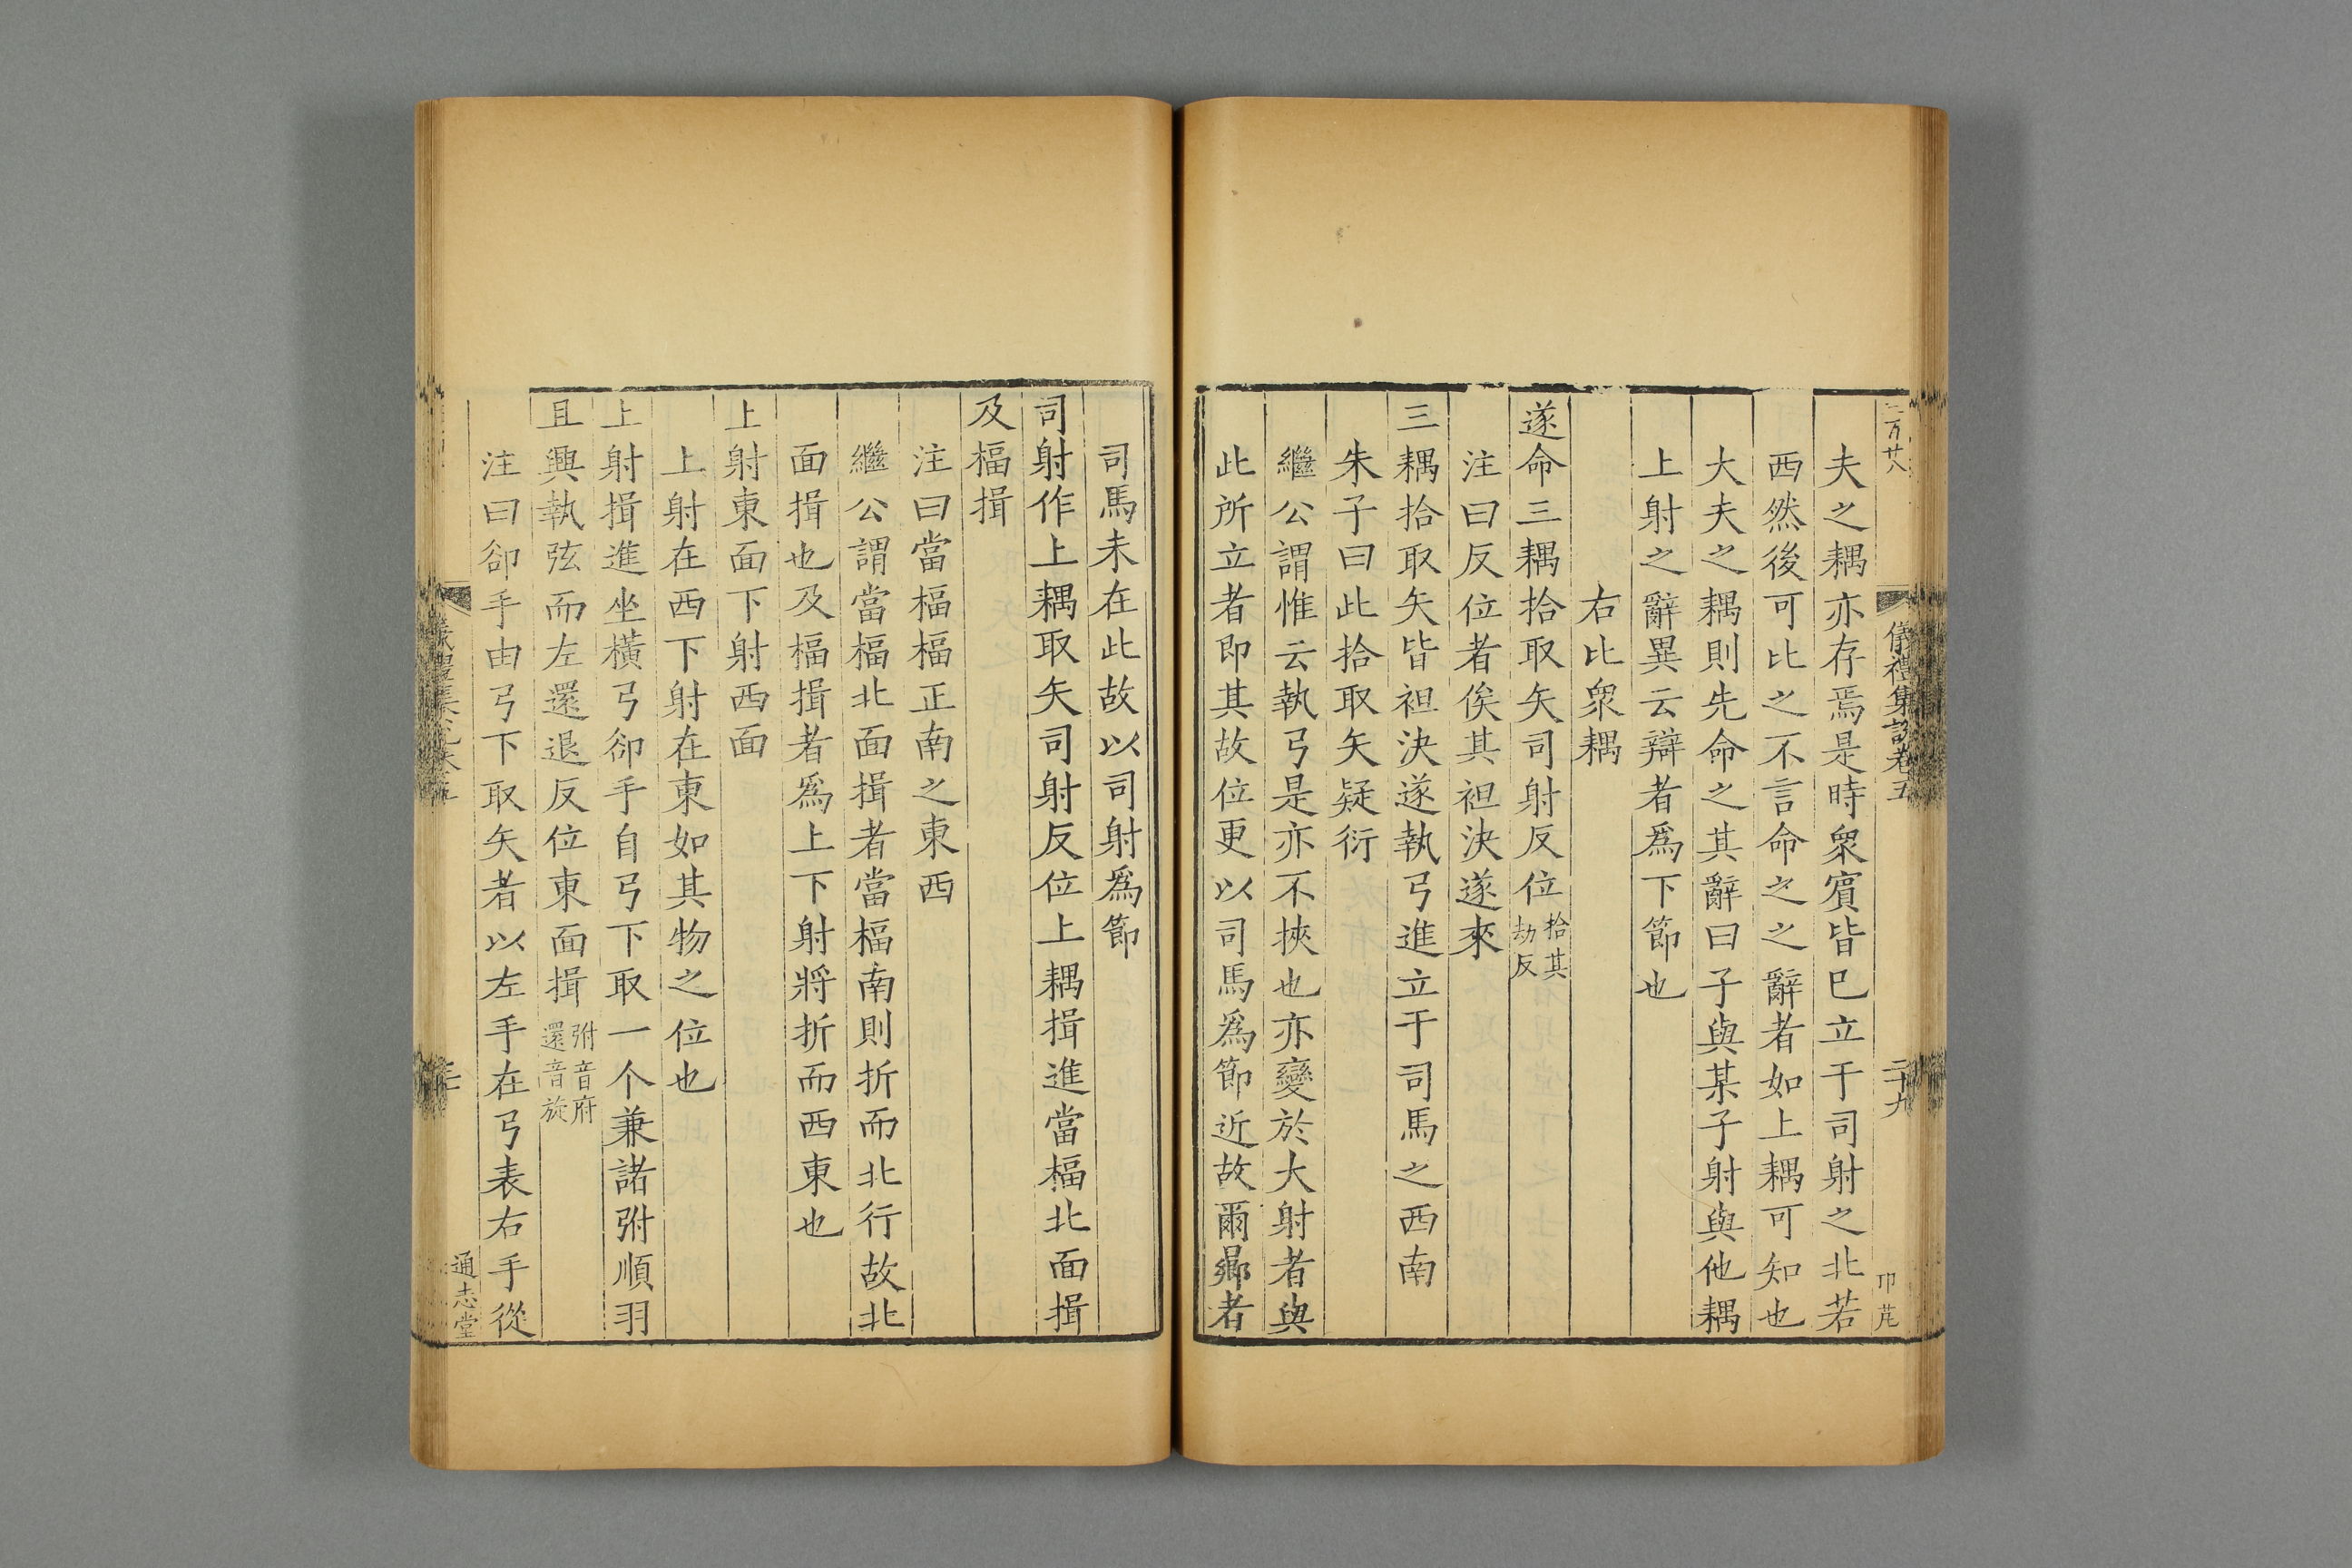 儀禮集說卷五
二十九
夫之耦亦存焉是時衆賓皆已立于司射之北若
西然後可比之不言命之之辭者如上耦可知也
大夫之耦則先命之其辭曰子與某子射與他耦
上射之辭異云辯者爲下節也
右比衆耦
遂命三耦拾取矢司射反位拾其劫反
注曰反位者俟其袒決遂來
三耦拾取矢皆袒決遂執弓進立于司馬之西南
朱子曰此拾取矢疑衍
繼公謂惟云執弓是亦不挾也亦變於大射者與
此所立者即其故位更以司馬爲節近故爾曏者
司馬未在此故以司射爲節
司射作上耦取矢司射反位上耦揖進當楅北面揖
及楅揖
注曰當楅楅正南之東西
繼公謂當楅北面揖者當楅南則折而北行故北
面揖也及楅揖者爲上下射將折而西東也
上射東面下射西面
上射在西下射在東如其物之位也
上射揖進坐橫弓卻手自弓下取一个兼諸弣順羽
且興執弦而左還退反位東面揖弣音府還音旋
注曰卻手由弓下取矢者以左手在弓表右手從
通志堂